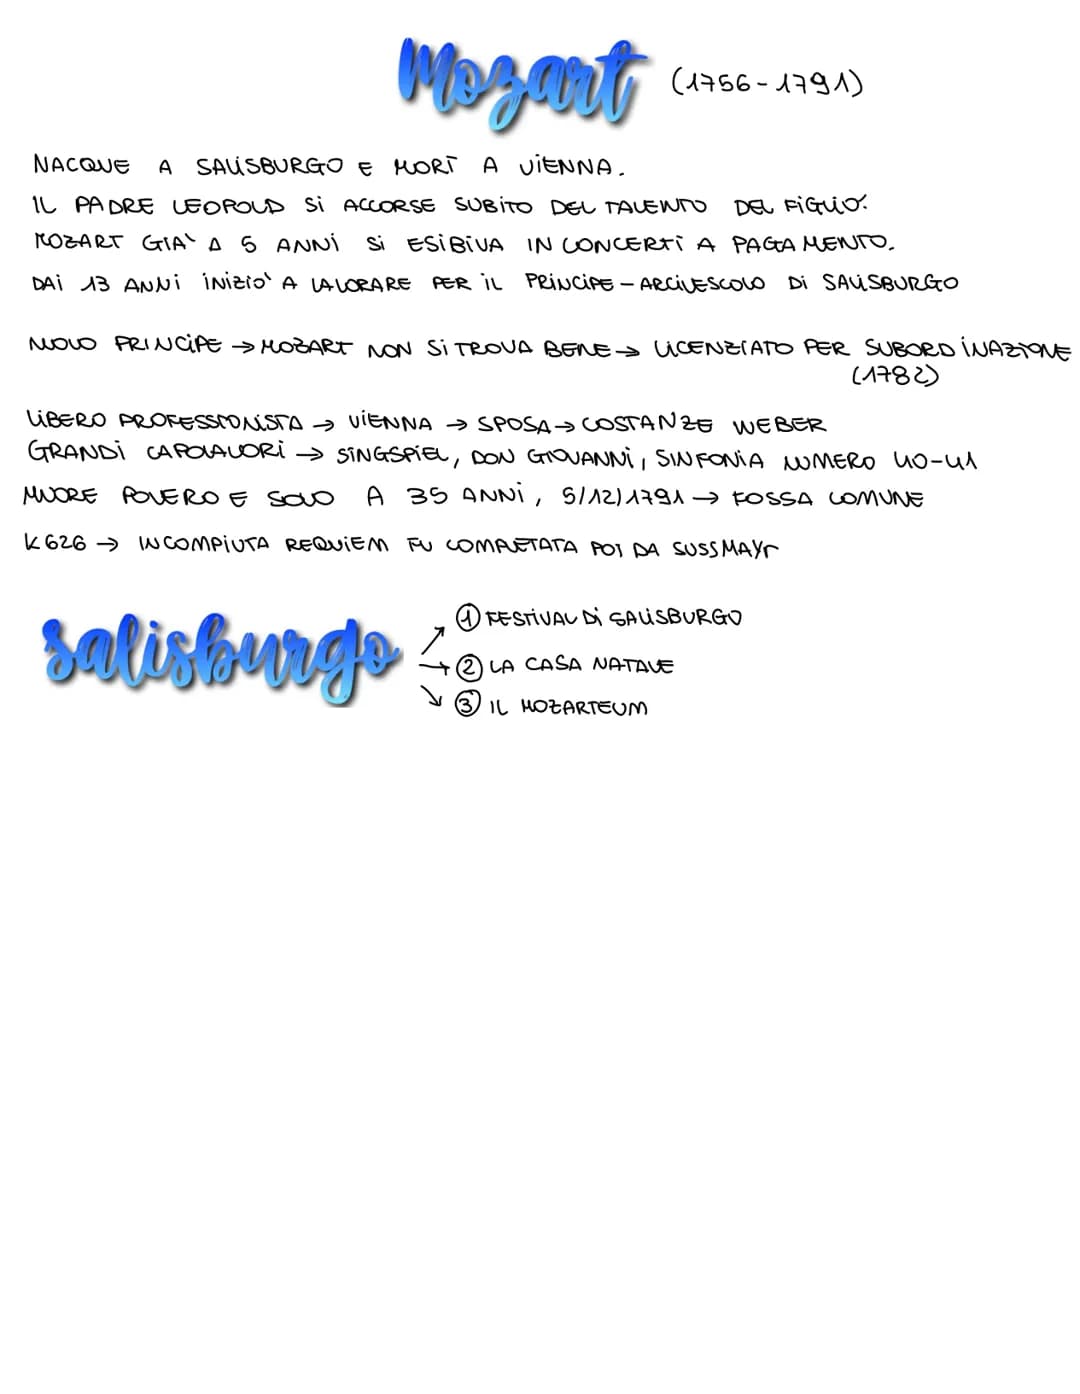 Mozart (1756-1791)
NACQUE A SALISBURGO E MORÌ A VIENNA.
IL PADRE LEOPOLD SI ACCORSE SUBITO DEL TALENTO DEL FIGLIO:
MOZART GIA' A 5 ANNI SI ESIBIVA IN CONCERTI A PAGAMENTO.
DAI 13 ANNI INIZIO' A LAVORARE PER IL PRINCIPE-ARCIVESCOVO DI SALISBURGO
NUOVO PRINCIPE → MOZART NON SI TROVA BENE → LICENZIATO PER SUBORDINAZIONE
(1782)
LIBERO PROFESSIONISTA → VIENNA → SPOSA → COSTANZE WEBER
GRANDI CAPOLAVORI → SINGSPIEL, DON GIOVANNI, SINFONIA NUMERO 40-41
MUORE POVERO E SOLO A 35 ANNI, 5/12/1791 → FOSSA COMUNE
K626 → INCOMPIUTA REQUIEM FU COMPLETATA POI DA SUSSMAYr
salisburgo
→ ① FESTIVAL DI SALISBURGO
→ ② LA CASA NATALE
→ ③ IL MOZARTEUM